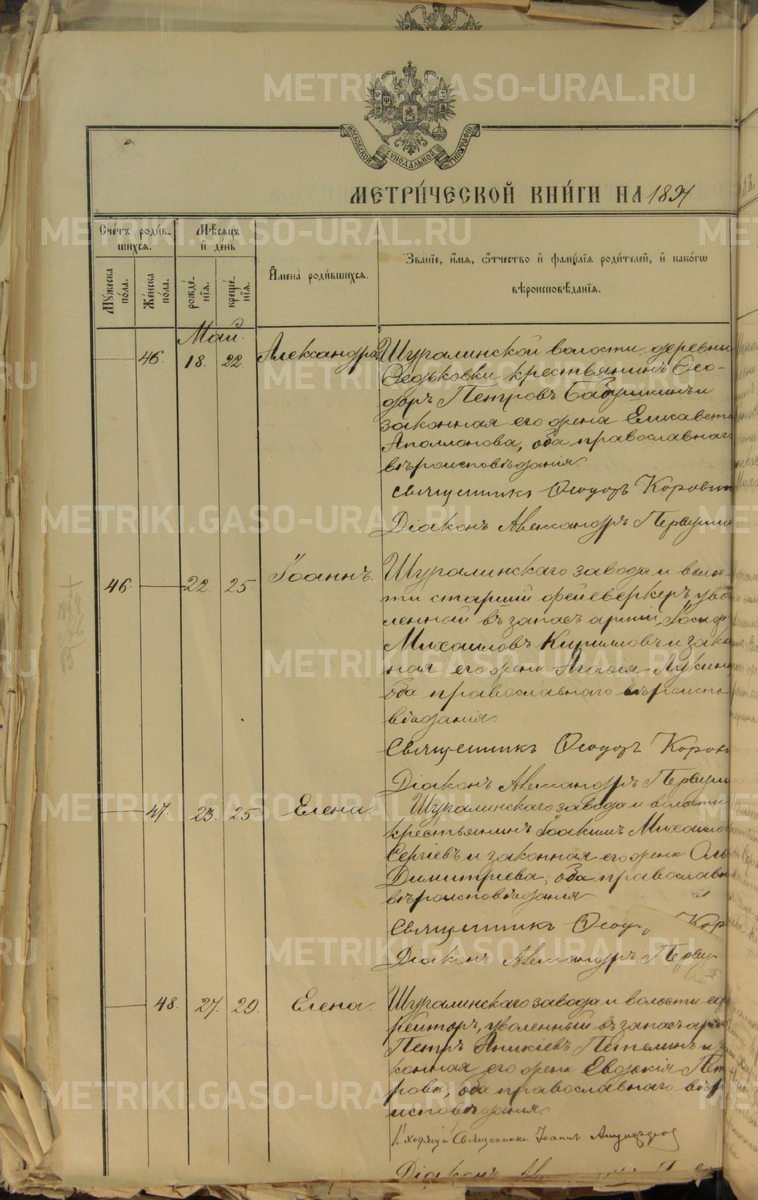 МЕТРИ́ЧЕСКОЙ КНИ́ГИ НА 1897
МОСКОВСКОЙ СѴНОДАЛЬНОЙ ТИПОГРАФІИ
Сче́тъ роди́в-
шихся.
Мꙋ́жеска по́ла.
Же́нска по́ла.
Мѣ́сяцъ
и҆ де́нь
рожде́-
нїѧ.
креще́-
нїѧ.
И҆мена̀ роди́вшихся.
Зва́нїе, и҆́мя, ѻ҆́тчество и҆ фами́лїя роди́телей, и҆ како́гѡ
вѣроисповѣ́данїя.
Май
46 18. 22 Александра Шуралинской волости деревни
Федьковки крестьянинъ Ѳео-
доръ Петровъ Бабушкинъ и
законная его жена Елисавета
оба православнаго
вѣроисповѣданія.
Священникъ Ѳеодоръ Коровин
Діаконъ Александръ Первуши
46 22. 25. Іоаннъ. Шуралинскаго завода и волос-
ти старшій фейеверкеръ уво-
ленный въ запасъ арміи Іосиф
Михаиловъ Кирилловъ и зако
ная его жена Агаѳія Лукина
оба православнаго вѣроиспо
вѣданія.
Священникъ Ѳеодоръ Корови
Діаконъ Александръ Первуши
47. 23. 25. Елена. Шуралинскаго завода и волости
крестьянинъ Іоакимъ Михаило
Сергіевъ и законная его жена Оль
Димитріева, оба православна
вѣроисповѣданія
Священникъ Ѳеод Кор
Діаконъ Александръ Перву
48. 27. 29. Елена. Шуралинскаго завода и волости еф
рейторъ, уволенный въ запасъ арм
Петръ Аникіевъ Петелинъ и за
конная его жена Евдокія Пет
рова, оба православнаго вѣро
исповѣданія
Священникъ Іоаннъ
Діаконъ
METRIKI.GASO-URAL.RU